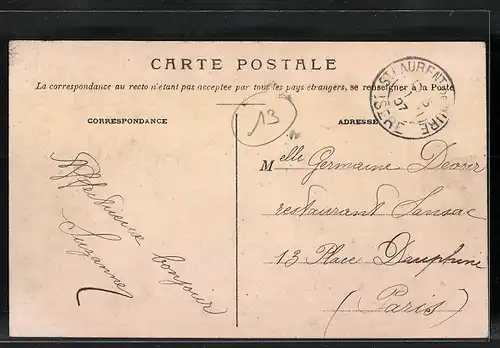 CARTE POSTALE
La correspondance au recto n'étant pas acceptée par tous les pays étrangers, se renseigner à la Poste
13
CORRESPONDANCE
ADRESSE
ST LAURENT DE MURE ISÈRE
07
Affectueux bonjour
Suzanne
Melle Germaine
restaurant Sansac
13 Place Dauphine
(Paris)